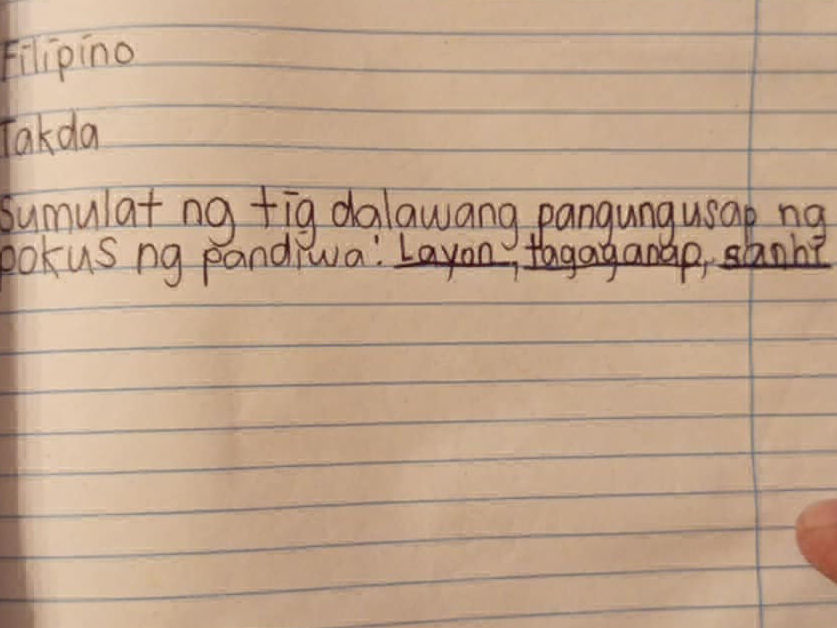 Filipino
Takda
Sumulat ng tig dalawang pangungusap ng
pokus ng pandiwa: Layon, tagaganap, sanhi